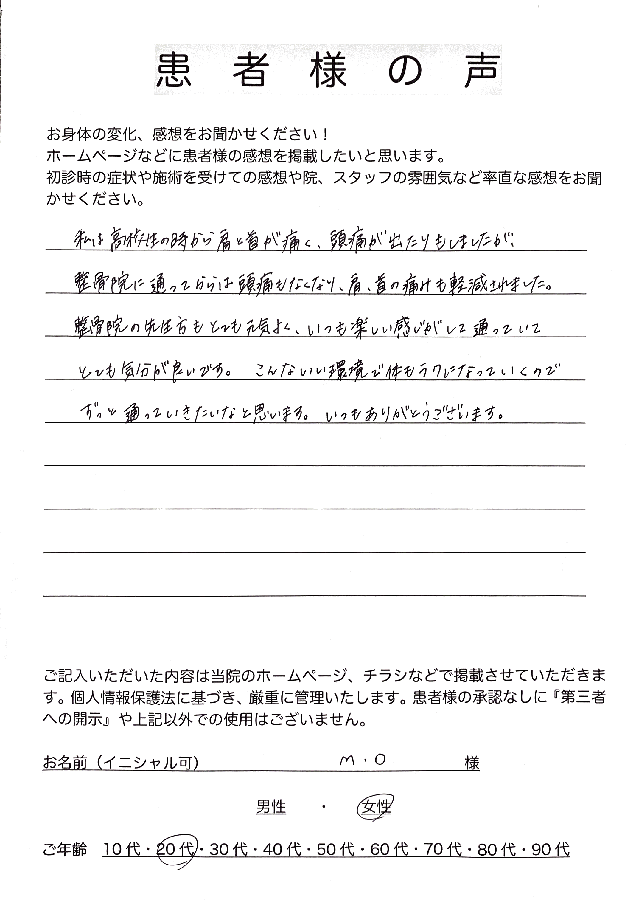 患者様の声
お身体の変化、感想をお聞かせください！
ホームページなどに患者様の感想を掲載したいと思います。
初診時の症状や施術を受けての感想や院、スタッフの雰囲気など率直な感想をお聞
かせください。
私は高校生の時から肩と首が痛く、頭痛が出たりもしましたが、
整骨院に通ってからは頭痛もなくなり、肩、首の痛みも軽減されました。
整骨院の先生方もとても元気よく、いつも楽しい感じがして通っていて
とても気分が良いです。こんないい環境で体もラクになっていくので
ずっと通っていきたいなと思います。いつもありがとうございます。
ご記入いただいた内容は当院のホームページ、チラシなどで掲載させていただきま
す。個人情報保護法に基づき、厳重に管理いたします。患者様の承認なしに『第三者
への開示』や上記以外での使用はございません。
お名前（イニシャル可） M・O 様
男性 ・ 女性
ご年齢 10代・20代・30代・40代・50代・60代・70代・80代・90代